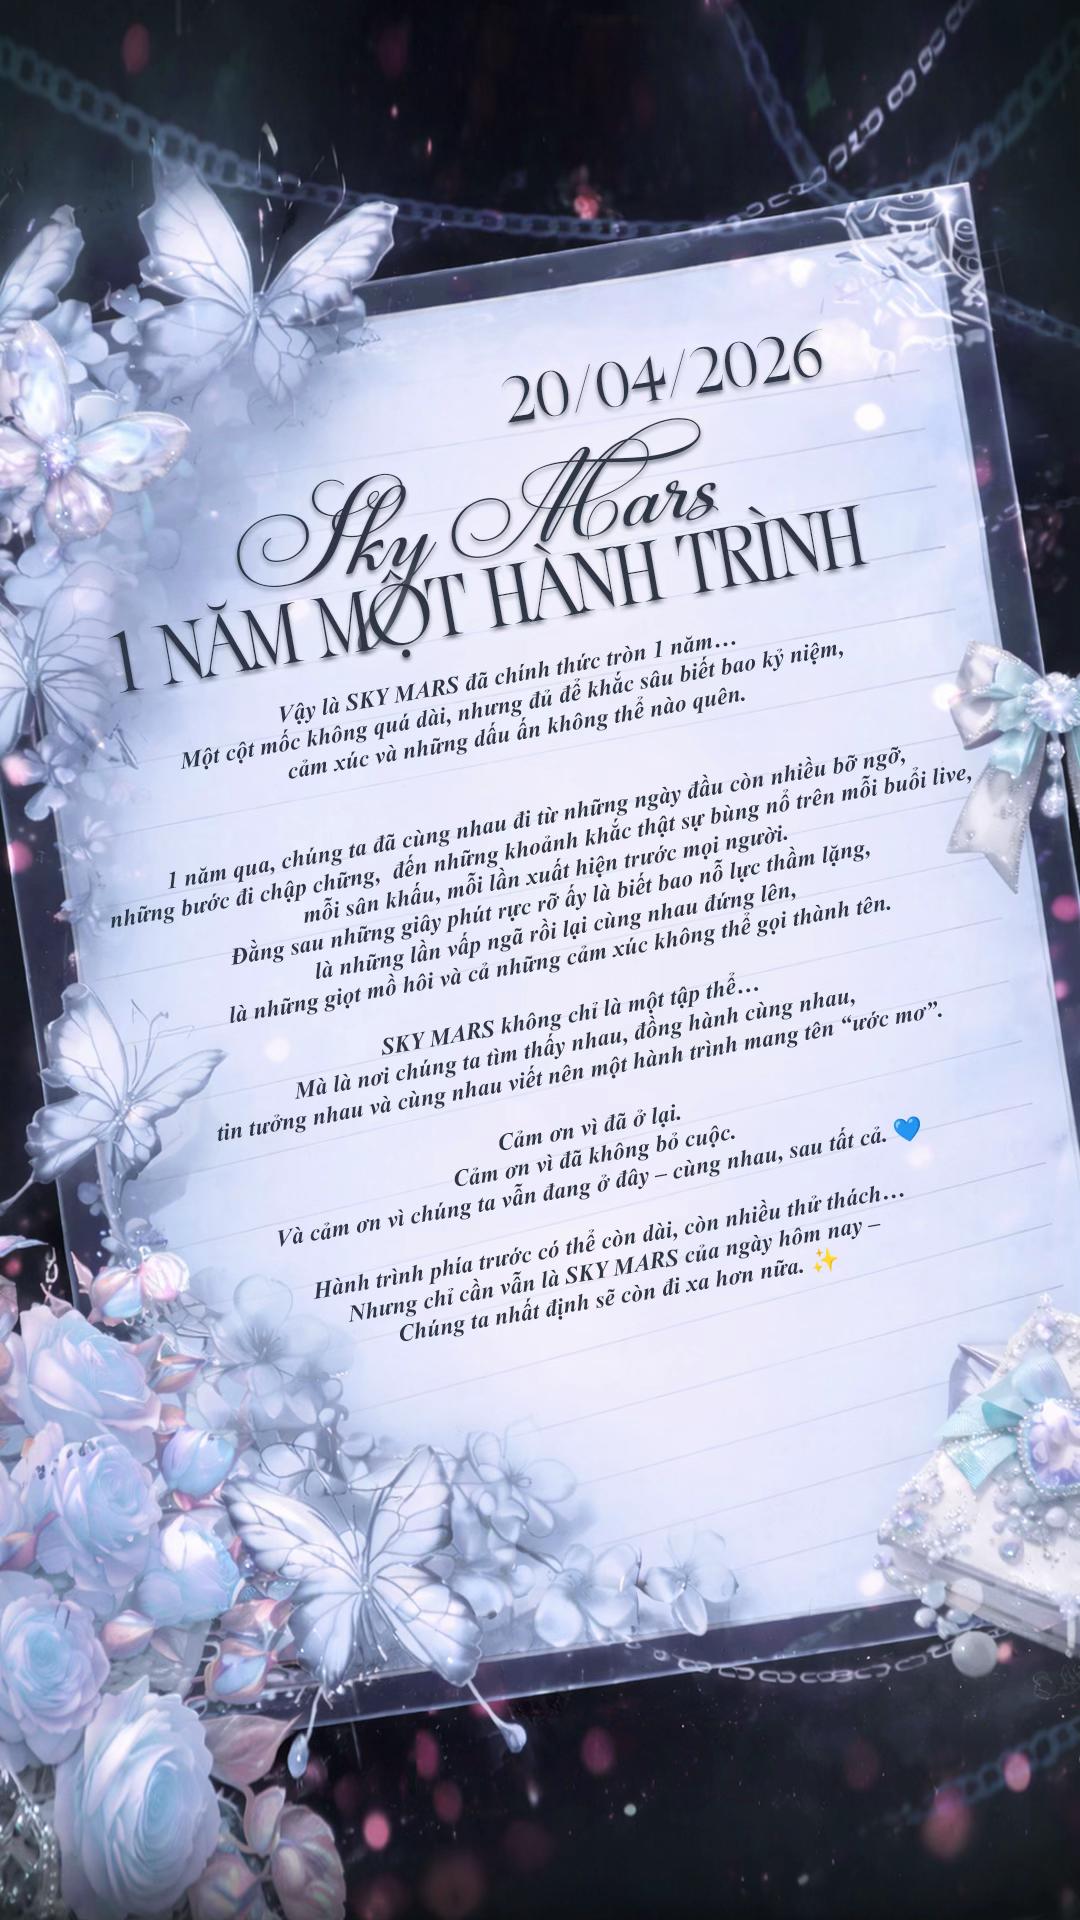 20/04/2026
Sky Mars
1 NĂM MỘT HÀNH TRÌNH
Vậy là SKY MARS đã chính thức tròn 1 năm…
Một cột mốc không quá dài, nhưng đủ để khắc sâu biết bao kỷ niệm,
cảm xúc và những dấu ấn không thể nào quên.
1 năm qua, chúng ta đã cùng nhau đi từ những ngày đầu còn nhiều bỡ ngỡ,
những bước đi chập chững, đến những khoảnh khắc thật sự bùng nổ trên mỗi buổi live,
mỗi sân khấu, mỗi lần xuất hiện trước mọi người.
Đằng sau những giây phút rực rỡ ấy là biết bao nỗ lực thầm lặng,
là những lần vấp ngã rồi lại cùng nhau đứng lên,
là những giọt mồ hôi và cả những cảm xúc không thể gọi thành tên.
SKY MARS không chỉ là một tập thể…
Mà là nơi chúng ta tìm thấy nhau, đồng hành cùng nhau,
tin tưởng nhau và cùng nhau viết nên một hành trình mang tên “ước mơ”.
Cảm ơn vì đã ở lại.
Cảm ơn vì đã không bỏ cuộc.
Và cảm ơn vì chúng ta vẫn đang ở đây – cùng nhau, sau tất cả. 💙
Hành trình phía trước có thể còn dài, còn nhiều thử thách…
Nhưng chỉ cần vẫn là SKY MARS của ngày hôm nay –
Chúng ta nhất định sẽ còn đi xa hơn nữa. ✨